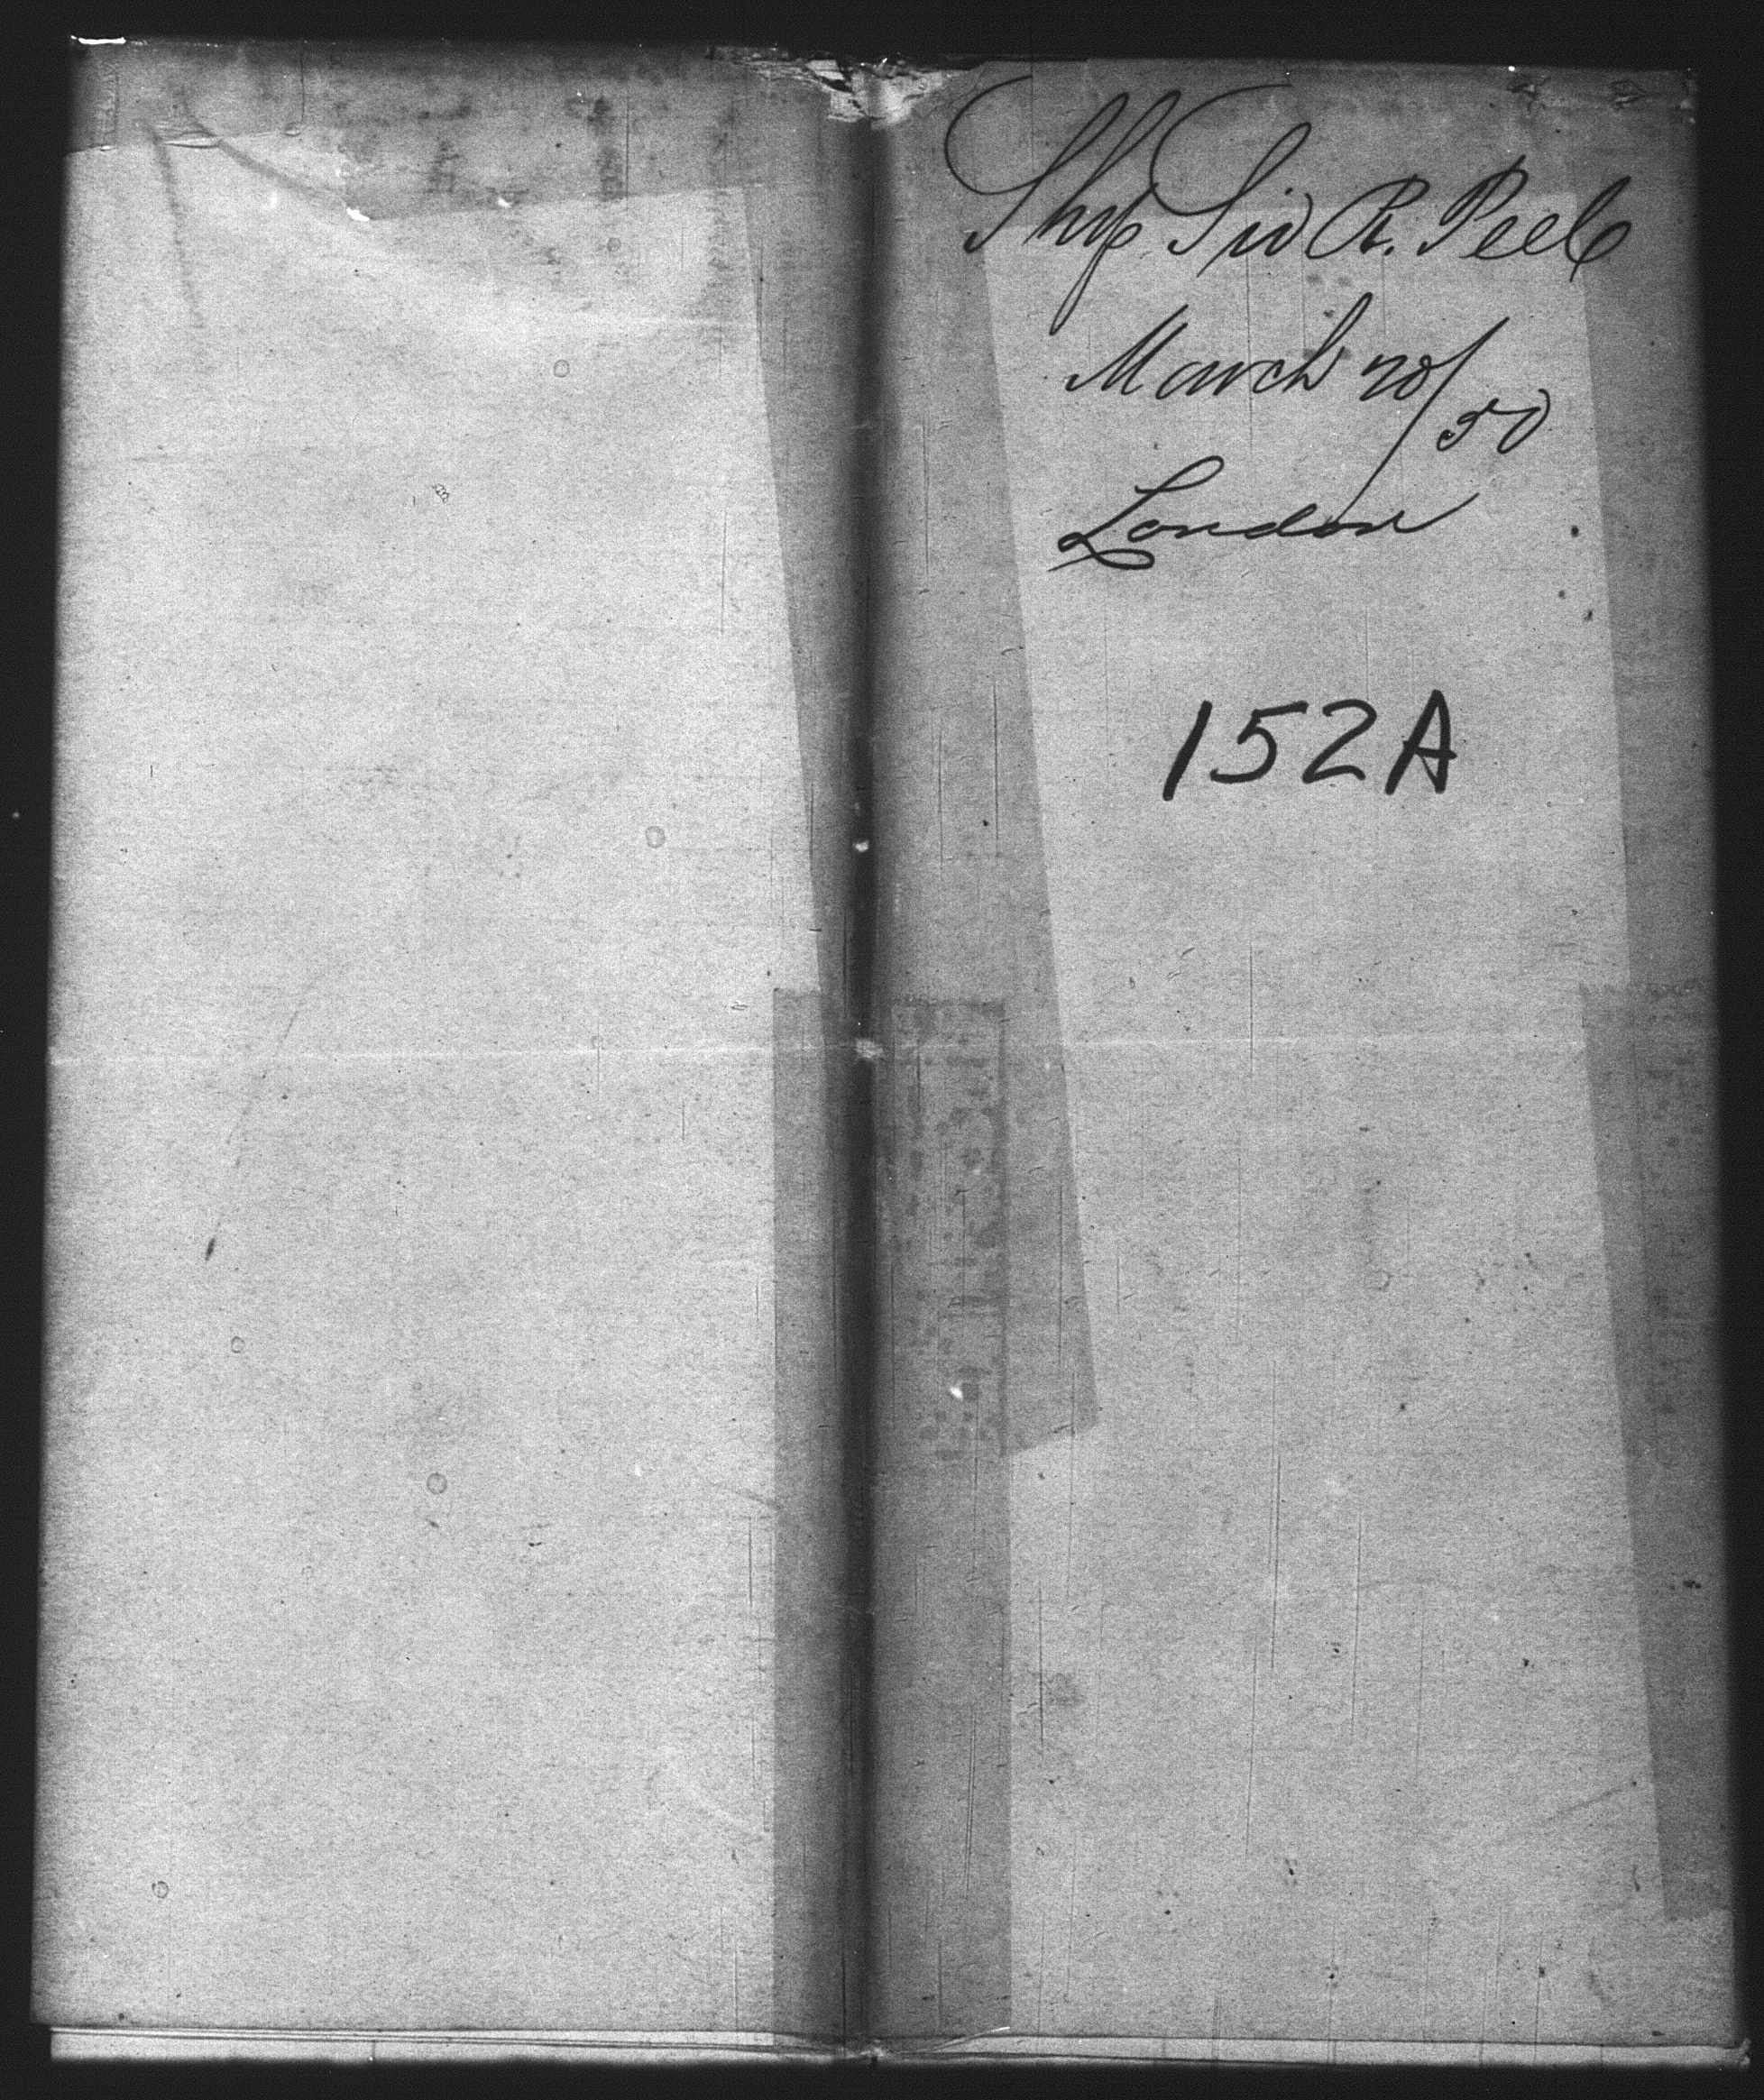 Ship Sir R. Peel
March 20/50
London
152A